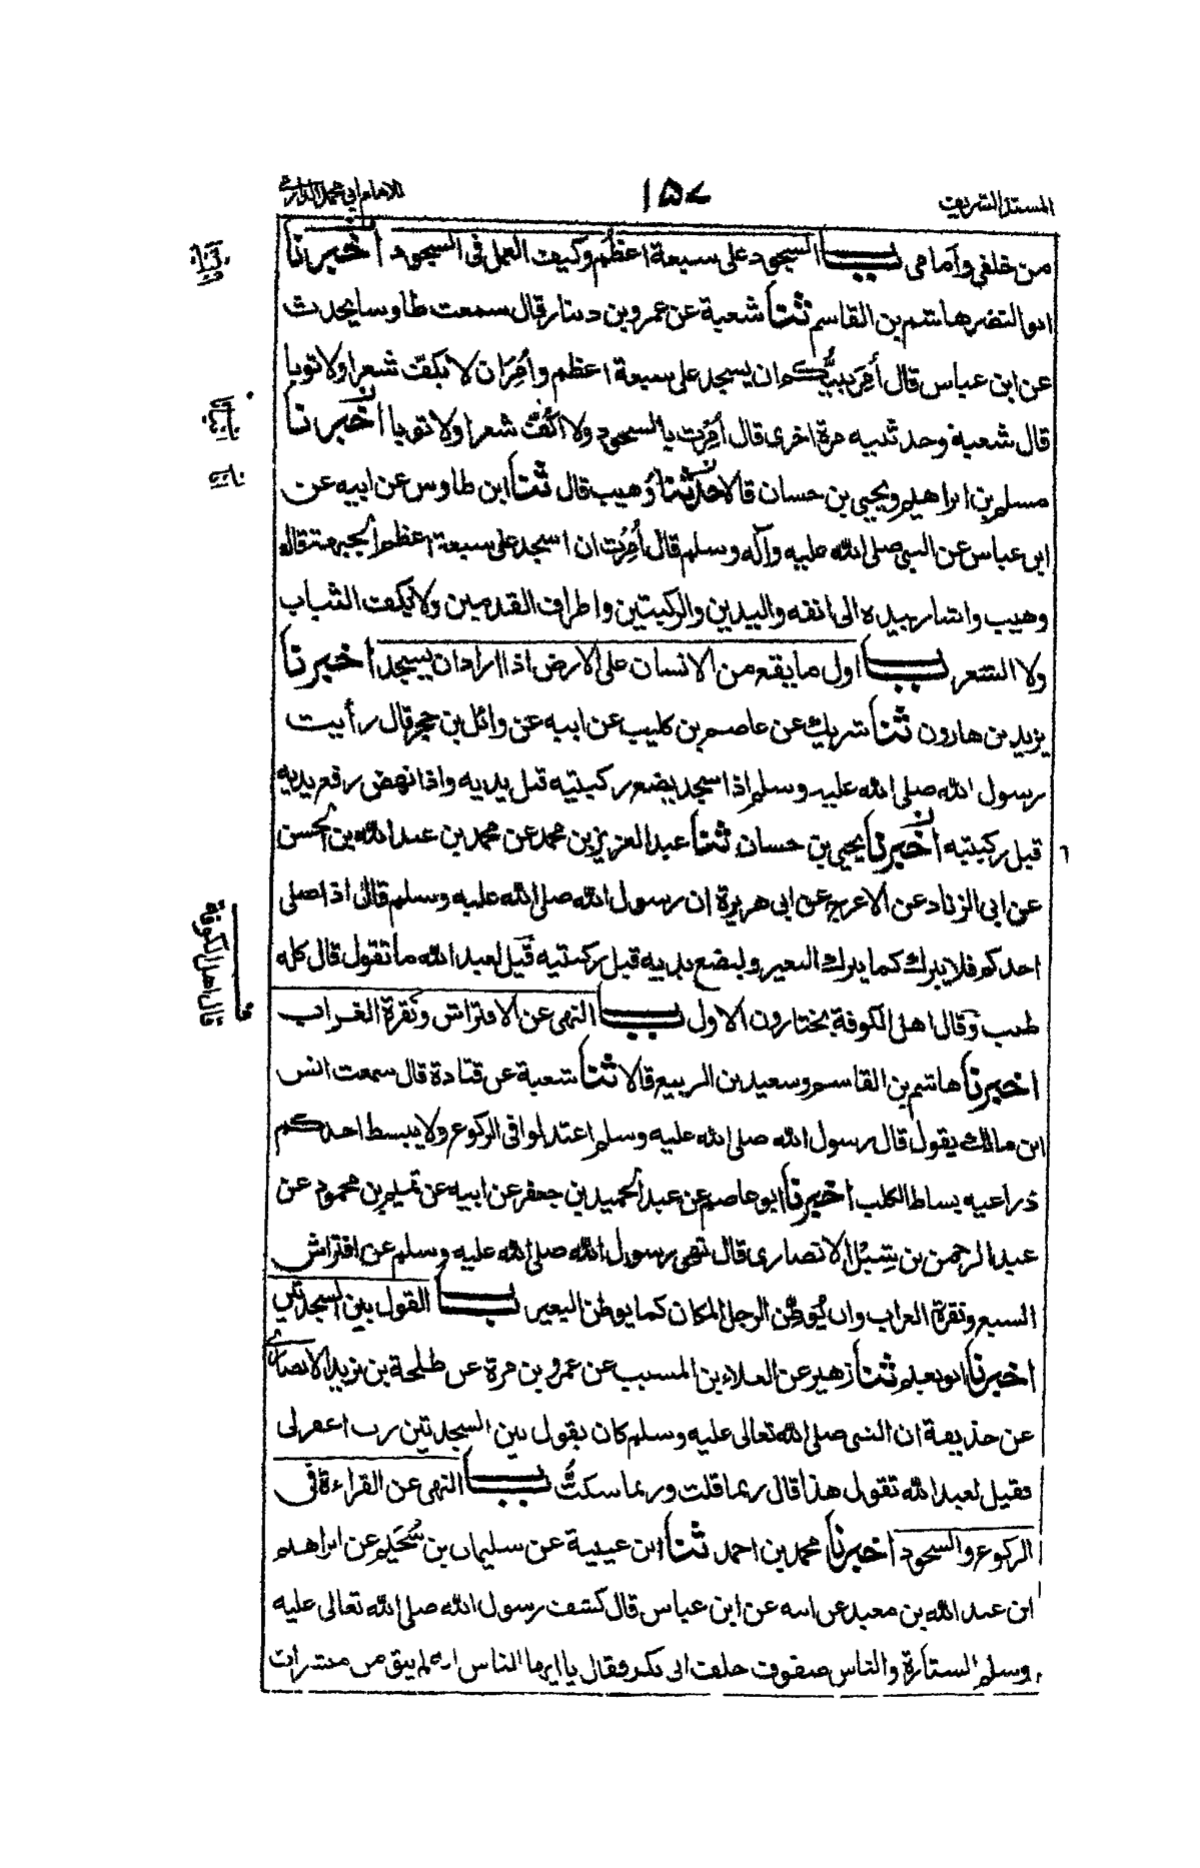 المسند الشريف
١٥٧
للامام ابي محمد الدارمي
من خلفي وأمامي باب السجود على سبعة اعظم وكيف العمل في السجود اخبرنا
ابو النضر هاشم بن القاسم ثنا شعبة عن عمرو بن دينار قال سمعت طاوسا يحدث
عن ابن عباس قال أمر نبيكم ان يسجد على سبعة اعظم وأمر ان لا يكف شعرا ولا ثوبا
قال شعبة وحدثنيه مرة اخرى قال أمرت بالسجود ولا اكف شعرا ولا ثوبا اخبرنا
مسلم بن ابراهيم ويحيى بن حسان قالا حدثنا وهيب قال ثنا ابن طاوس عن ابيه عن
ابن عباس عن النبي صلى الله عليه وآله وسلم قال أمرت ان اسجد على سبعة اعظم الجبهة قال
وهيب واشار بيده الى انفه واليدين والركبتين واطراف القدمين ولا نكف الثياب
ولا الشعر باب اول ما يقع من الانسان على الارض اذا اراد ان يسجد اخبرنا
يزيد بن هارون ثنا شريك عن عاصم بن كليب عن ابيه عن وائل بن حجر قال رأيت
رسول الله صلى الله عليه وسلم اذا سجد يضع ركبتيه قبل يديه واذا نهض رفع يديه
قبل ركبتيه اخبرنا يحيى بن حسان ثنا عبد العزيز بن محمد عن محمد بن عبد الله بن الحسن
عن ابي الزناد عن الاعرج عن ابي هريرة ان رسول الله صلى الله عليه وسلم قال اذا صلى
احدكم فلا يبرك كما يبرك البعير وليضع يديه قبل ركبتيه قيل لعبد الله ما تقول قال كله
طيب وقال اهل الكوفة يختارون الاول باب النهي عن الافتراش ونقرة الغراب
اخبرنا هاشم بن القاسم وسعيد بن الربيع قالا ثنا شعبة عن قتادة قال سمعت انس
ابن مالك يقول قال رسول الله صلى الله عليه وسلم اعتدلوا في الركوع ولا يبسط احدكم
ذراعيه بساط الكلب اخبرنا ابو عاصم عن عبد الحميد بن جعفر عن ابيه عن تميم بن محمود عن
عبد الرحمن بن شبل الانصاري قال نهى رسول الله صلى الله عليه وسلم عن افتراش
السبع ونقرة الغراب وان يوطن الرجل المكان كما يوطن البعير باب القول بين السجدتين
اخبرنا ابو نعيم ثنا زهير عن العلاء بن المسيب عن عمرو بن مرة عن طلحة بن يزيد الانصاري
عن حذيفة ان النبي صلى الله تعالى عليه وسلم كان يقول بين السجدتين رب اغفر لي
فقيل لعبد الله تقول هذا قال ربما قلت وربما سكت باب النهي عن القراءة في
الركوع والسجود اخبرنا محمد بن احمد ثنا ابن عيينة عن سليمان بن سحيم عن ابراهيم
ابن عبد الله بن معبد عن ابيه عن ابن عباس قال كشف رسول الله صلى الله تعالى عليه
وسلم الستارة والناس صفوف خلف ابي بكر فقال يا ايها الناس انه لم يبق من مبشرات
قال اهل الكوفة